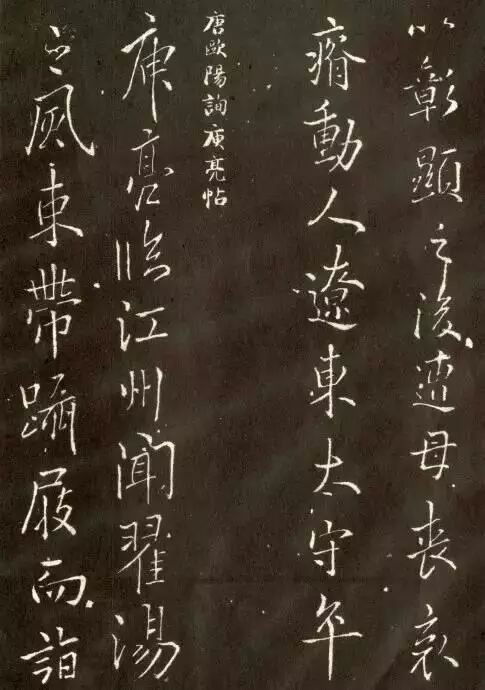 以彰顯之後遭母喪哀
瘠動人遼東太守年
唐歐陽詢庾亮帖
庾亮臨江州聞翟湯
之風束帶躡屐而詣